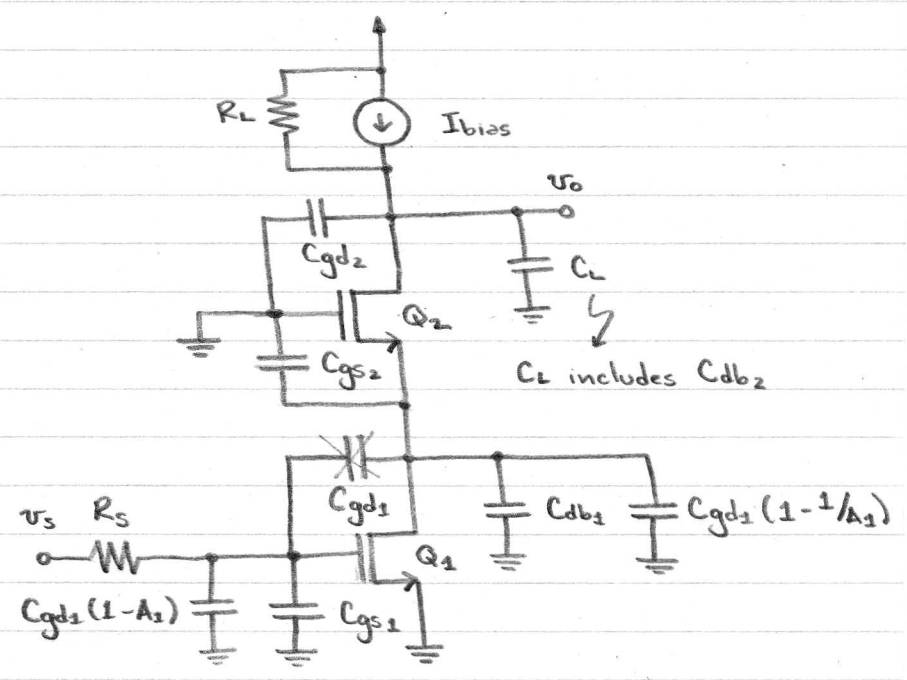 RL
Ibias
vo
Cgd2
CL
Q2
Cgs2
CL includes Cdb2
Cgd1
Cdb1
Cgd1 (1-1/A1)
vs Rs
Q1
Cgd1 (1-A1)
Cgs1